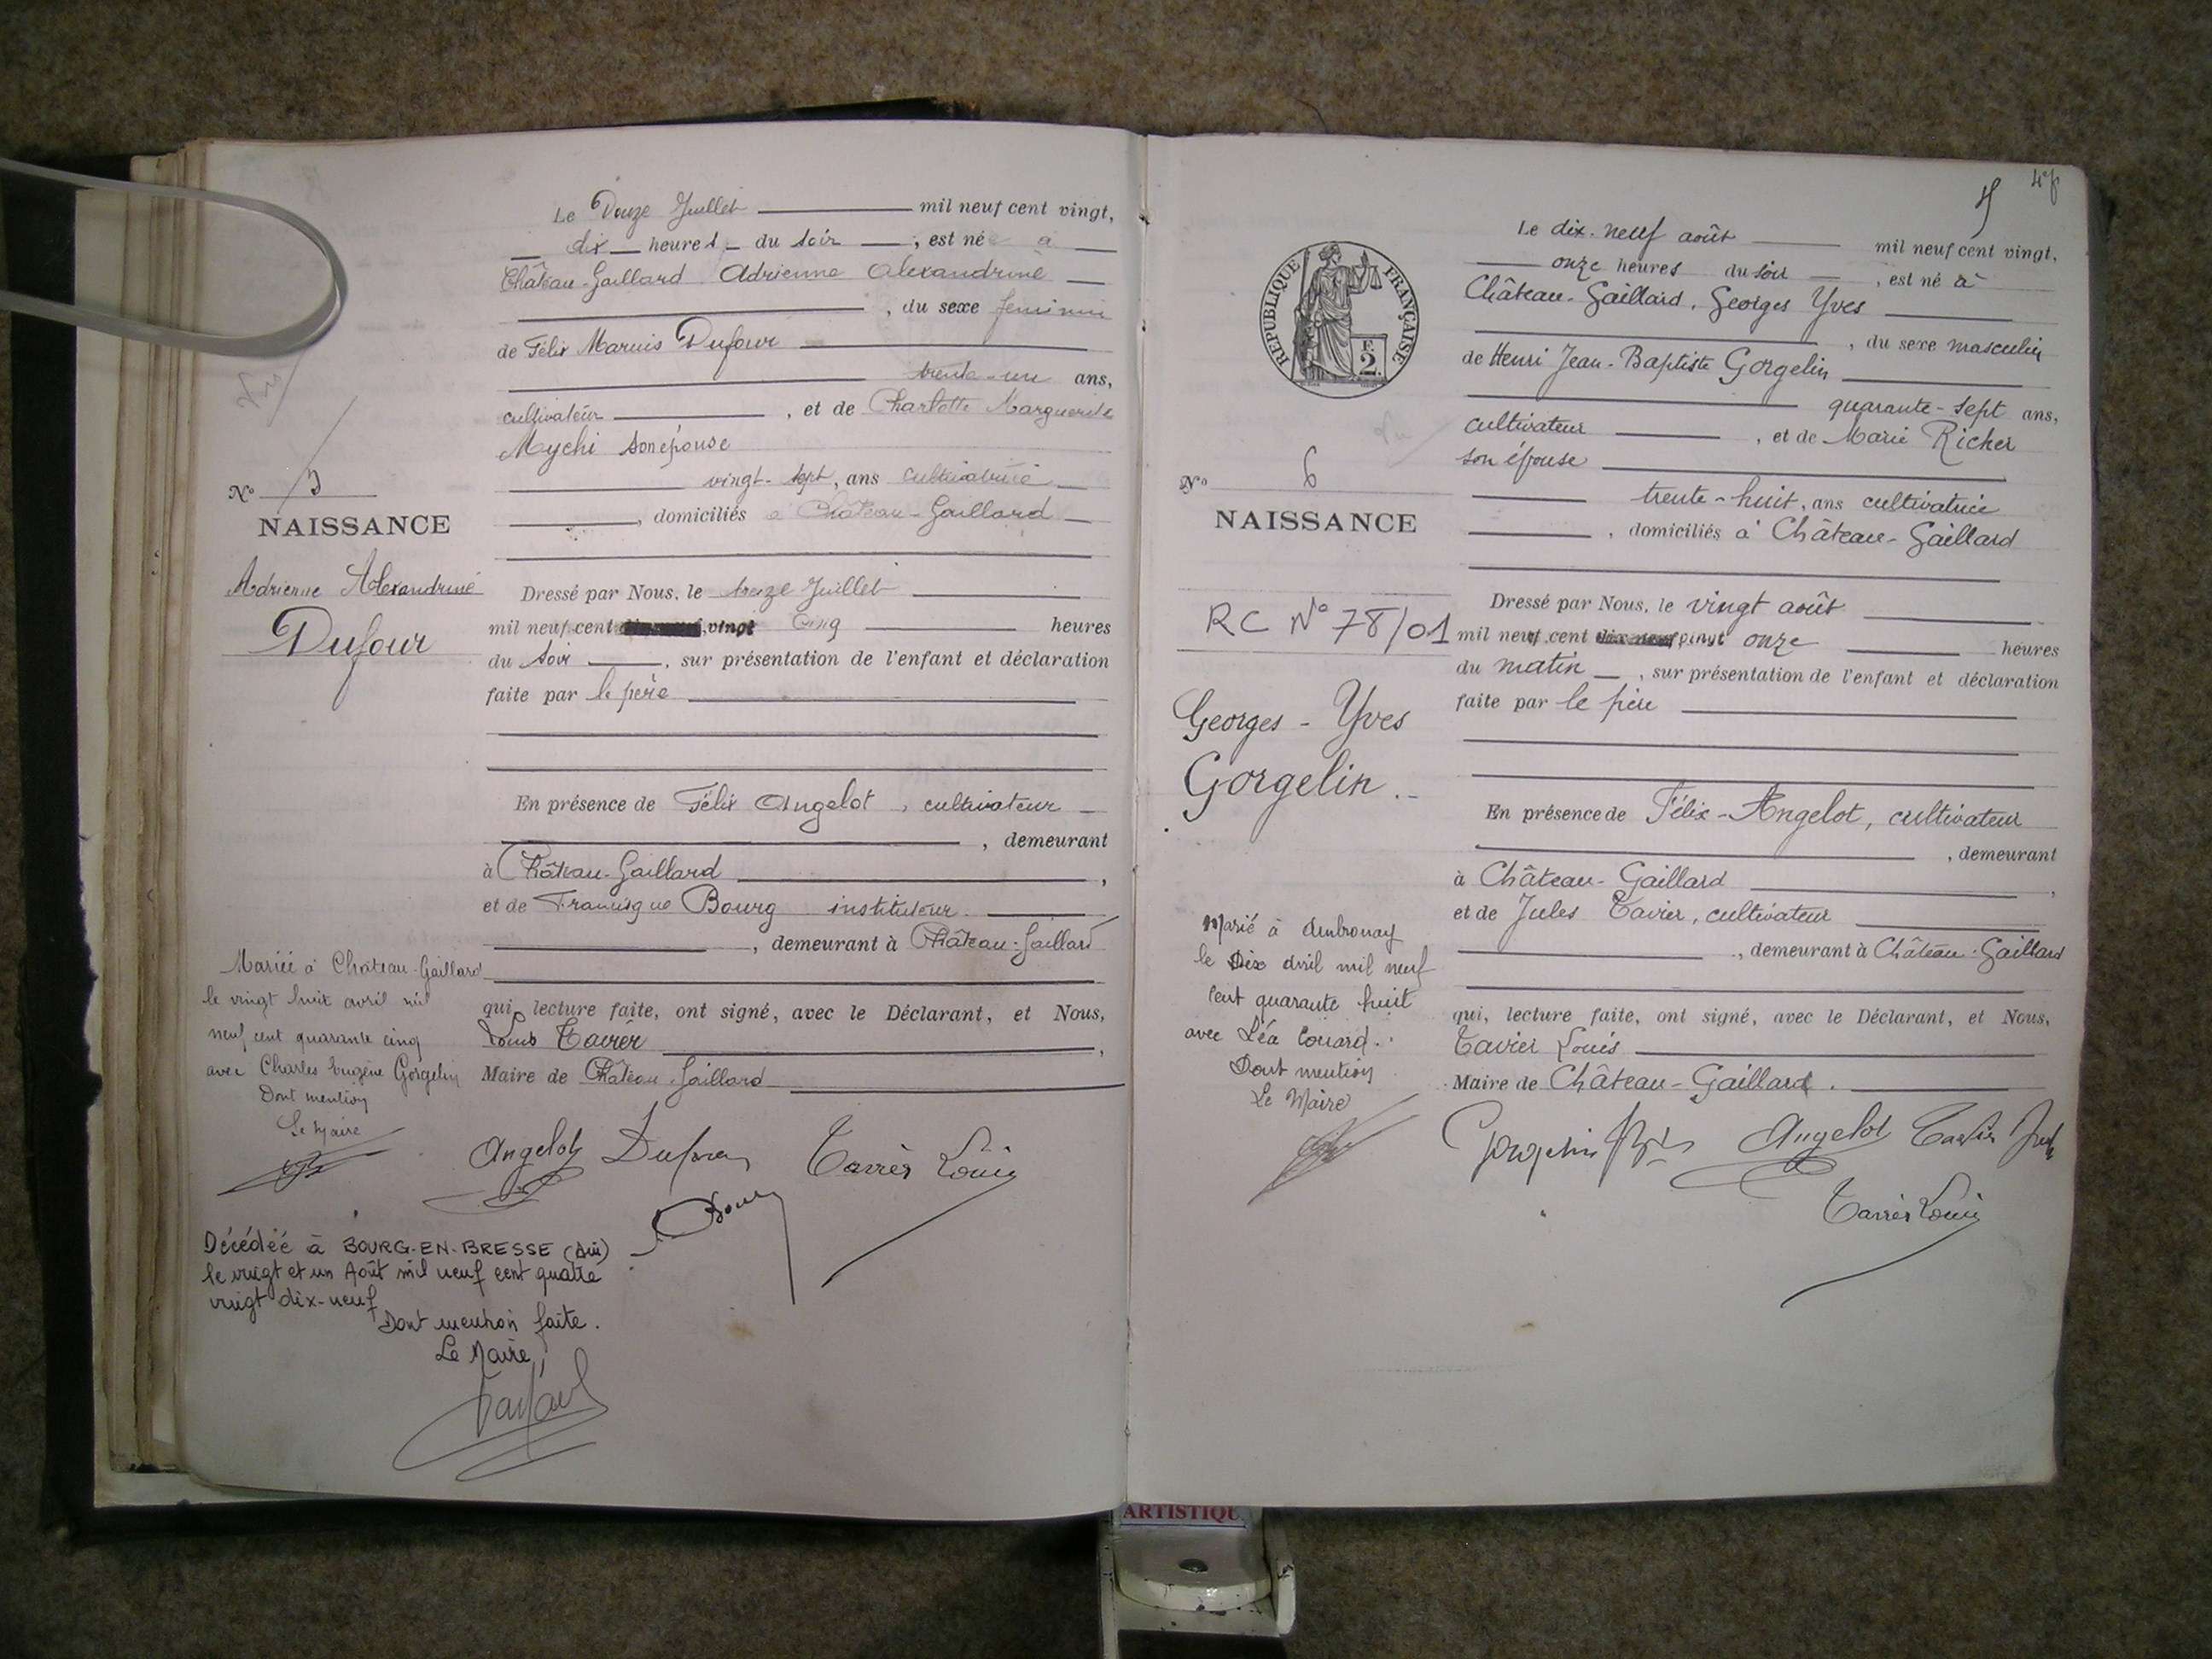 Le Douze Juillet mil neuf cent vingt,
dix heures du soir, est née à
Château-Gaillard Adrienne Alexandrine
, du sexe féminin
de Félix Marius Dufour
trente-un ans,
cultivateur, et de Charlotte Marguerite
Mychi son épouse
vingt-sept, ans cultivatrice
, domiciliés à Château-Gaillard
Nº 5
NAISSANCE
Adrienne Alexandrine
Dufour
Dressé par Nous, le treize Juillet
mil neuf cent vingt Cinq heures
du soir, sur présentation de l'enfant et déclaration
faite par le père
En présence de Félix Angelot, cultivateur
, demeurant
à Château-Gaillard,
et de Francisque Bourg instituteur
, demeurant à Château-Gaillard
qui, lecture faite, ont signé, avec le Déclarant, et Nous,
Louis Tavier,
Maire de Château Gaillard
Mariée à Château-Gaillard
le vingt huit avril mil
neuf cent quarante cinq
avec Charles Eugène Gorgelin
Dont mention
Le Maire
Angelot Dufour Tavier Louis
Bourg
Décédée à BOURG-EN-BRESSE (Ain)
le vingt et un Août mil neuf cent quatre
vingt dix-neuf
Dont mention faite.
Le Maire,
5
RÉPUBLIQUE FRANÇAISE
F.
2.
Le dix-neuf août mil neuf cent vingt,
onze heures du soir, est né à
Château-Gaillard, Georges Yves
, du sexe masculin
de Henri Jean-Baptiste Gorgelin
quarante-sept ans,
cultivateur, et de Marie Richer
son épouse
trente-huit, ans cultivatrice
, domiciliés à Château-Gaillard
Nº 6
NAISSANCE
RC Nº 78/01
Georges-Yves
Gorgelin.
Dressé par Nous, le vingt août
mil neuf cent dix-neuf vingt onze heures
du matin, sur présentation de l'enfant et déclaration
faite par le père
En présence de Félix-Angelot, cultivateur
, demeurant
à Château-Gaillard,
et de Jules Tavier, cultivateur
, demeurant à Château-Gaillard
qui, lecture faite, ont signé, avec le Déclarant, et Nous,
Tavier Louis
Maire de Château-Gaillard.
Marié à Ambronay
le Dix avril mil neuf
cent quarante huit
avec Léa Couard.
Dont mention
Le Maire
Gorgelin Angelot Tavier
Tavier Louis
ARTISTIQU